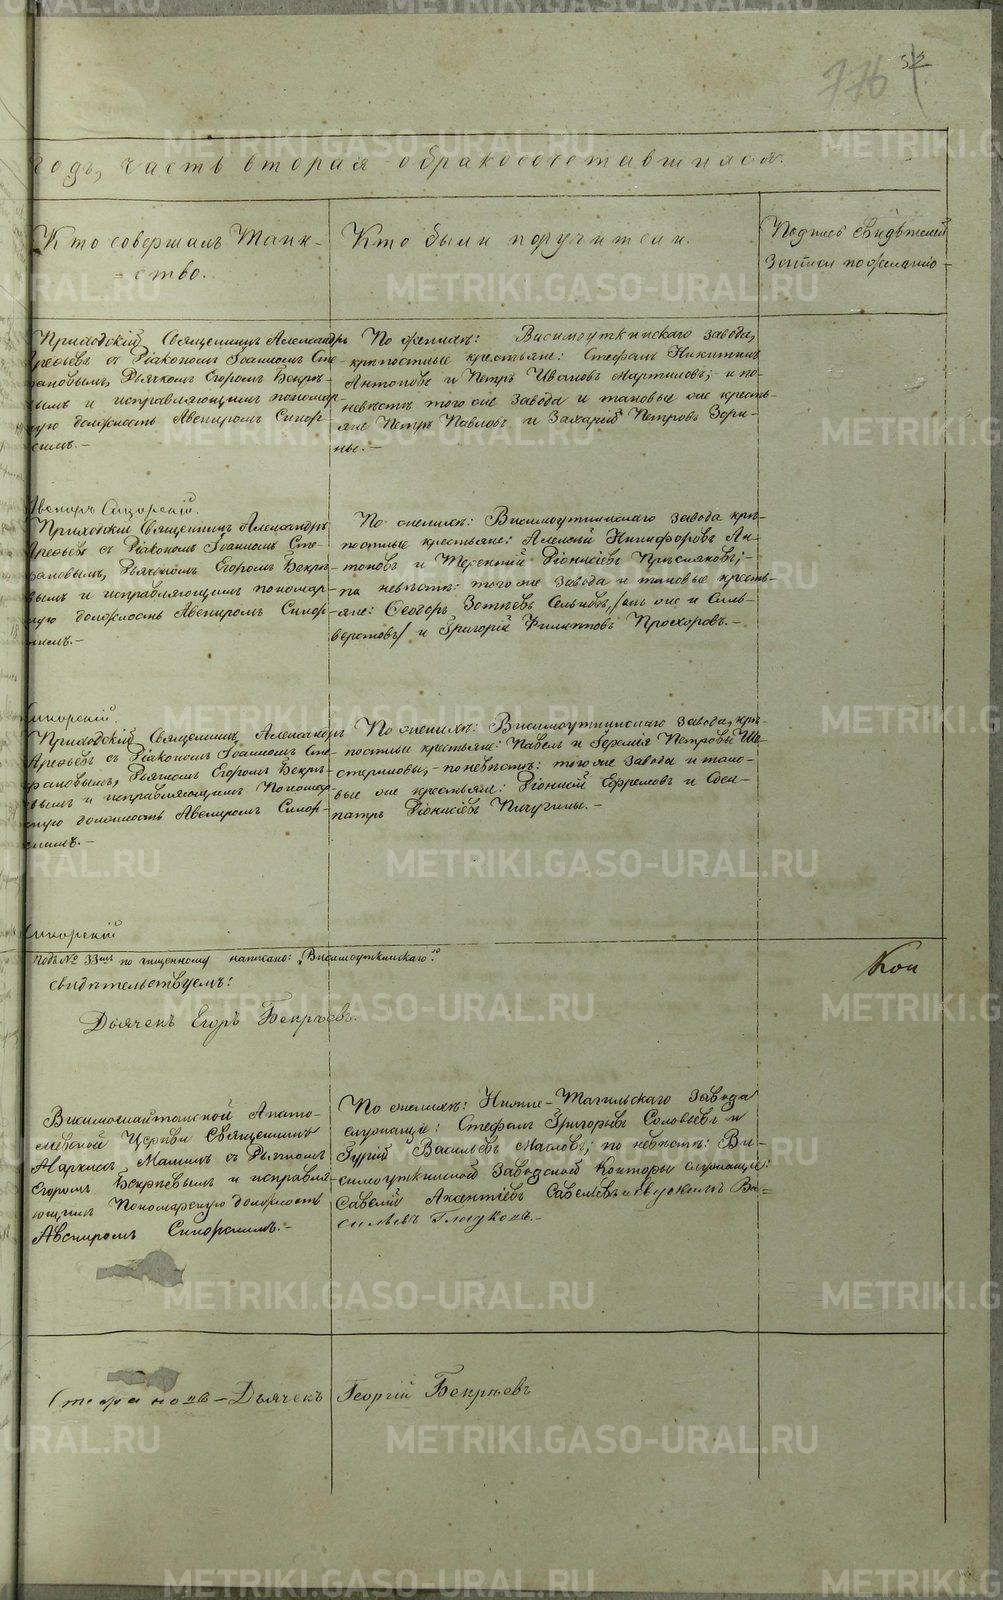 776
годъ, часть вторая о бракосочетавшихся.
Кто совершалъ Таин-
-ство.
Кто были поручители.
Подпись свидѣтелей
записи по желанію
Приходскій Священникъ Александръ
Арефьевъ съ Діакономъ Іоанномъ Сте-
фановымъ, Дьячкомъ Егоромъ Бекрѣ-
вымъ и исправляющимъ пономар-
скую должность Авениромъ Сикор-
скимъ.-
По женихѣ: Висимоуткинскаго завода,
крѣпостные крестьяне: Стефанъ Никитинъ
Антоновъ и Петръ Ивановъ Мартиновъ;- и по
невѣстѣ того же завода и таковые же кресть-
яне Петръ Павловъ и Захарій Петровъ Зори-
ны.-
Авениръ Сикорскій.
Приходскій Священникъ Александръ
Арефьевъ съ Діакономъ Іоанномъ Сте-
фановымъ, Дьячкомъ Егоромъ Бекрѣ-
вымъ и исправляющимъ пономар-
скую должность Авениромъ Сикор-
скимъ.-
По женихѣ: Висимоуткинскаго завода крѣ-
постные крестьяне: Алексій Никифоровъ Ан-
тоновъ и Терентій Діонисіевъ Присмяковъ;-
по невѣстѣ: того же завода и таковые кресть-
яне: Ѳеодоръ Зотіевъ /онъ же и Силь-
верстовъ/ и Григорій Филипповъ Прохоровъ.-
Сикорскій.
Приходскій Священникъ Александръ
Арефьевъ съ Діакономъ Іоанномъ Сте-
фановымъ, Дьячкомъ Егоромъ Бекрѣ-
вымъ и исправляющимъ Пономар-
скую должность Авениромъ Сикор-
скимъ.-
По женихѣ: Висимоуткинскаго завода, крѣ-
постные крестьяне: Павелъ и Іеремія Петровы Ше-
стериковы,- по невѣстѣ: того же завода и тако-
вые же крестьяне: Діонисій Ефремовъ и Соси-
патръ Діонисіевъ Пичугины.-
Сикорскій
Подъ № 33мъ по чищенному написано: "Висимоуткинскаго".
свидѣтельствуемъ:
Дьячекъ Егоръ Бекрѣевъ.
Кон
Висимошайтанской Анато-
ліевской Церкви Священникъ
Маркіанъ Маминъ съ Дьячкомъ
Егоромъ Бекрѣевымъ и исправля-
ющимъ Пономарскую должность
Авениромъ Сикорскимъ.-
По женихѣ: Нижне-Тагильскаго Завода
служащіе: Стефанъ Григорьевъ Соловьевъ и
Гурій Васильевъ Масловъ; по невѣстѣ: Ви-
симоуткинской Заводской Конторы служащіе:
Савелій Акентіевъ Савеліевъ и Ва-
сильевъ
Стефановъ - Дьячекъ Георгій Бекрѣевъ
METRIKI.GASO-URAL.RU